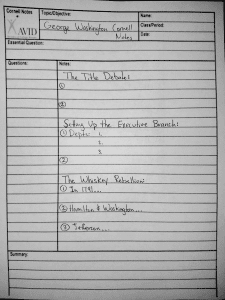 Cornell Notes
AVID
Topic/Objective:
George Washington Cornell
Notes
Name:
Class/Period:
Date:
Essential Question:
Questions:
Notes:
The Title Debate:
①
②
Setting Up the Executive Branch:
① Depts: 1.
2.
3.
②
The Whiskey Rebellion:
① In 1791...
② Hamilton & Washington...
③ Jefferson...
Summary: